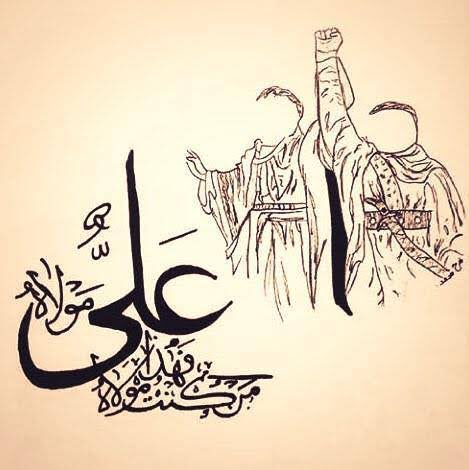 من کنت مولاه
فهذا
عَلیّ
مَولاه